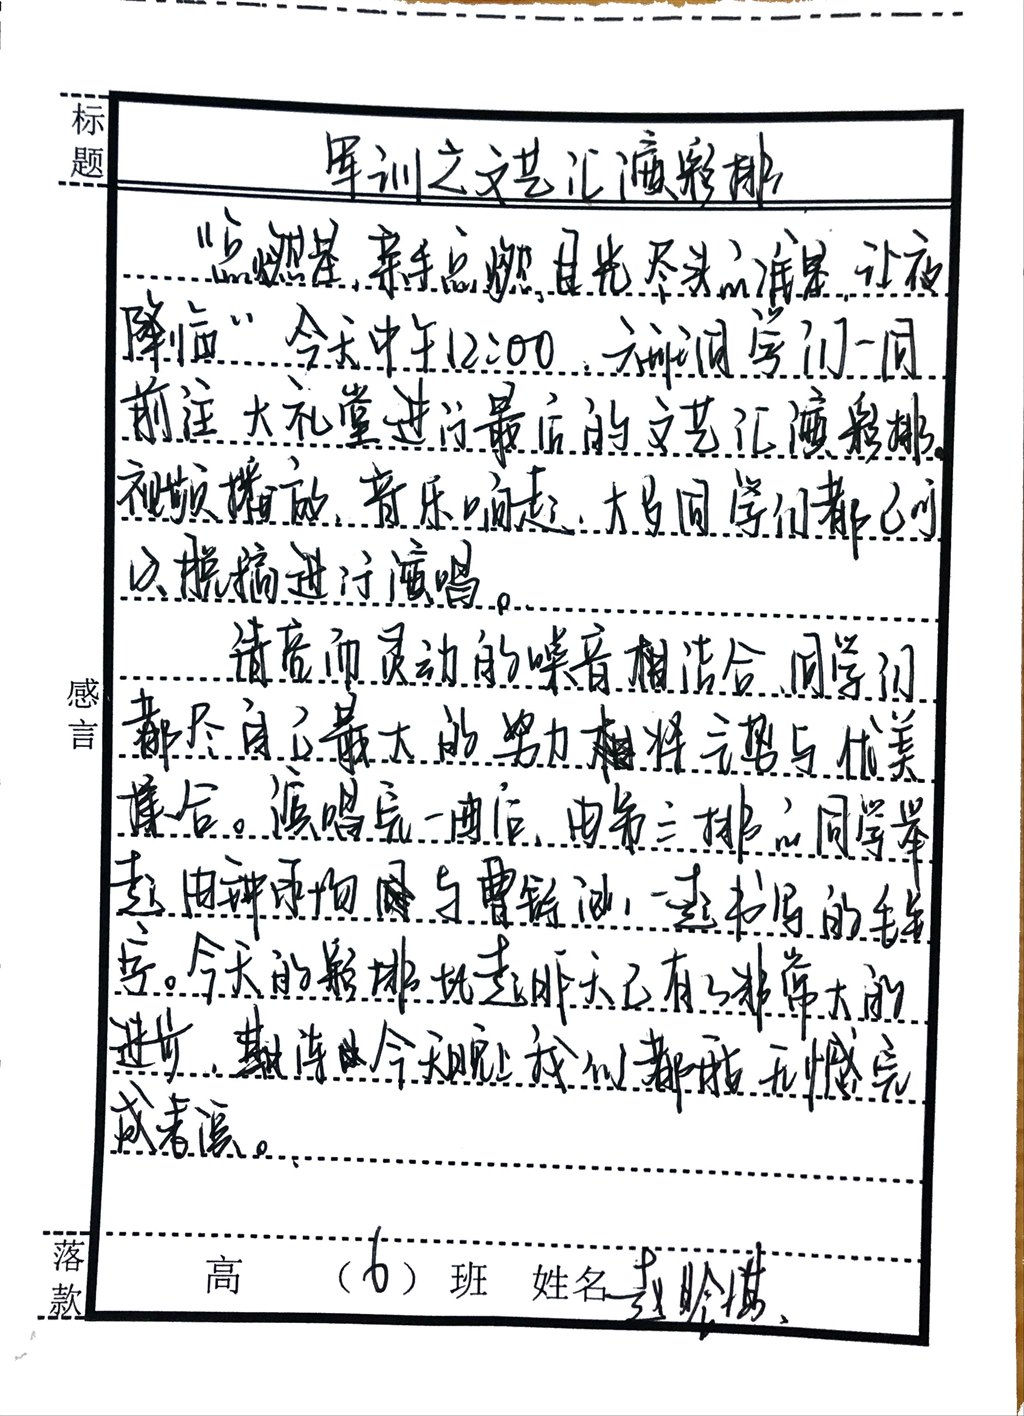 标题
军训之文艺汇演彩排
“点燃星,亲手点燃,目光尽头的准星,让夜
降临” 今天中午12:00,六班同学们一同
前往大礼堂进行最后的文艺汇演彩排。
视频播放,音乐响起,大多同学们都已可
以脱稿进行演唱。
清亮而灵动的嗓音相结合,同学们
都尽自己最大的努力将气势与优美
集合。演唱完一曲后,由第三排的同学举
起由 与曹 一起书写的毛笔
字。今天的彩排比起昨天已有了非常大的
进步, 今天晚上我们都能无憾完
成表演。
感言
落款
高 (6)班 姓名 赵晗淇